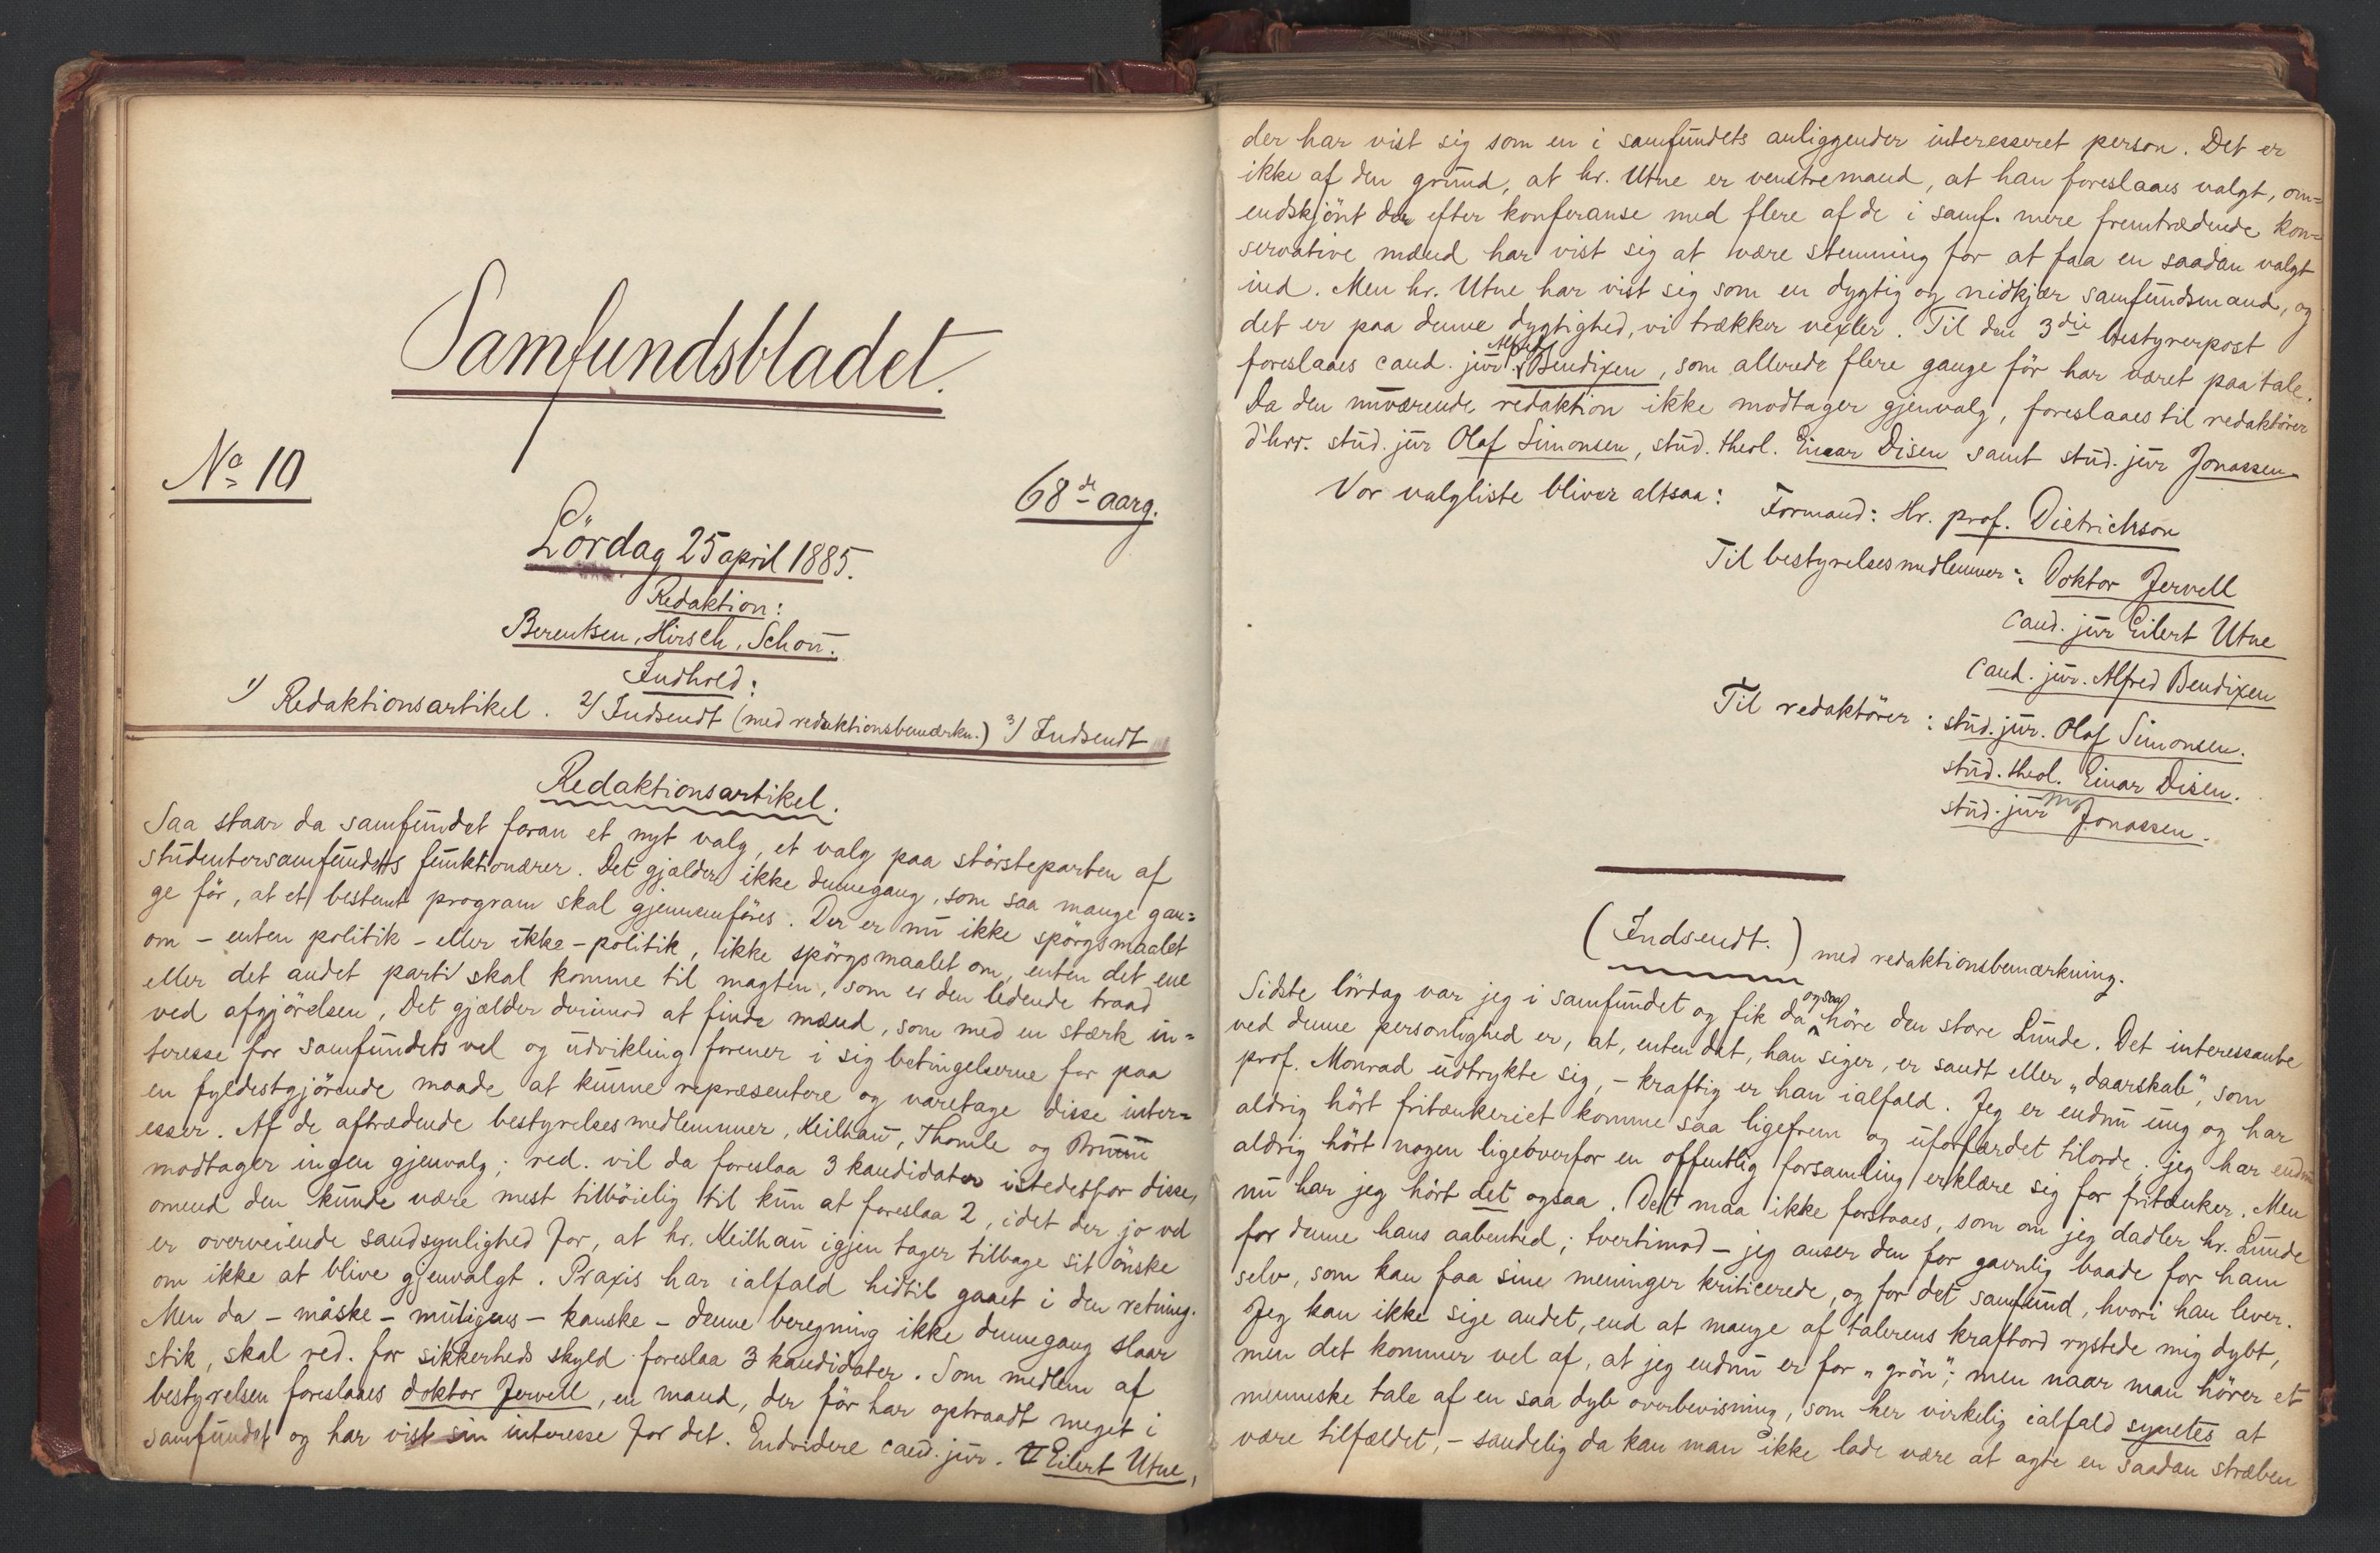 Samfundsbladet.
No 10
68de aarg.
Lördag 25 april 1885.
Redaktion:
Berentsen, Hirsch, Schou.
Indhold:
1) Redaktionsartikel. 2) Indsendt (med redaktionsbemærkn.) 3) Indsendt
Redaktionsartikel.
Saa staar da samfundet foran et nyt valg, et valg paa störsteparten af
studentersamfundets funktionærer. Det gjælder ikke dennegang, som saa mange gan=
ge för, at et bestemt program skal gjennemföres. Der er nu ikke spörgsmaalet
om - enten politik - eller ikke-politik, ikke spörgsmaalet om, enten det ene
eller det andet parti skal komme til magten, som er den ledende traad
ved afgjörelsen. Det gjælder derimod at finde mænd, som med en stærk in=
teresse for samfundets vel og udvikling forener i sig betingelserne for paa
en fyldestgjörende maade at kunne repræsentere og varetage disse inter=
esser. Af de aftrædende bestyrelsesmedlemmer, Keilhau, Thomle og Bruun
modtager ingen gjenvalg; red. vil da foreslaa 3 kandidater istedetfor disse,
omend den kunde være mest tilböielig til kun at foreslaa 2, idet der jo vel
er overveiende sandsynlighed for, at hr. Keilhau igjen tager tilbage sit önske
om ikke at blive gjenvalgt. Praxis har ialfald hidtil gaaet i den retning.
Men da - måske - muligens - kanske - denne beregning ikke dennegang slaar
stik, skal red. for sikkerheds skyld foreslaa 3 kandidater. Som medlem af
bestyrelsen foreslaaes doktor Jervell, en mand, der för har optraadt meget i
samfundet og har vist sin interesse for det. Endvidere cand. jur. Eilert Utne,
der har vist sig som en i samfundets anliggender interesseret person. Det er
ikke af den grund, at hr. Utne er venstremand, at han foreslaaes valgt, om=
endskjönt der efter konferanse med flere af de i samf. mere fremtrædende kon=
servative mænd har vist sig at være stemning for at faa en saadan valgt
ind. Men hr. Utne har vist sig som en dygtig og nidkjær samfundsmand, og
det er paa denne dygtighed, vi trækker vexler. Til den 3die bestyrerpost
foreslaaes cand. jur. Alfred Bendixen, som allerede flere gange för har været paa tale.
Da den nuværende redaktion ikke modtager gjenvalg, foreslaaes til redaktörer
d'hrr. stud. jur Olaf Simonsen, stud. theol. Einar Disen samt stud. jur Jonassen
Vor valgliste bliver altsaa:
Formand: Hr. prof. Dietrichson
Til bestyrelsesmedlemmer: Doktor Jervell
Cand. jur Eilert Utne
Cand. jur. Alfred Bendixen
Til redaktörer: stud. jur. Olaf Simonsen.
stud. theol. Einar Disen.
stud. jur M Jonassen.
(Indsendt.) med redaktionsbemærkning.
Sidste lördag var jeg i samfundet og fik da ogsaa höre den store Lunde. Det interessante
ved denne personlighed er, at, enten det, han siger, er sandt eller „daarskab", som
prof. Monrad udtrykte sig, - kraftig er han ialfald. Jeg er endnu ung og har
aldrig hört fritænkeriet komme saa ligefrem og uforfærdet tilorde; jeg har endnu
aldrig hört nogen ligeoverfor en offentlig forsamling erklære sig for fritænker. Men
nu har jeg hört det ogsaa. Dett maa ikke forstaaes, som om jeg dadler hr. Lunde
for denne hans aabenhed; tvertimod - jeg anser den for gavnlig baade for ham
selv, som kan faa sine meninger kriticerede, og for det samfund, hvori han lever.
Jeg kan ikke sige andet, end at mange af talerens kraftord rystede mig dybt,
men det kommer vel af, at jeg endnu er for „grön"; men naar man hörer et
menneske tale af en saa dyb overbevisning, som her virkelig ialfald syntes at
være tilfældet, - sandelig da kan man ikke lade være at agte en saadan stræben